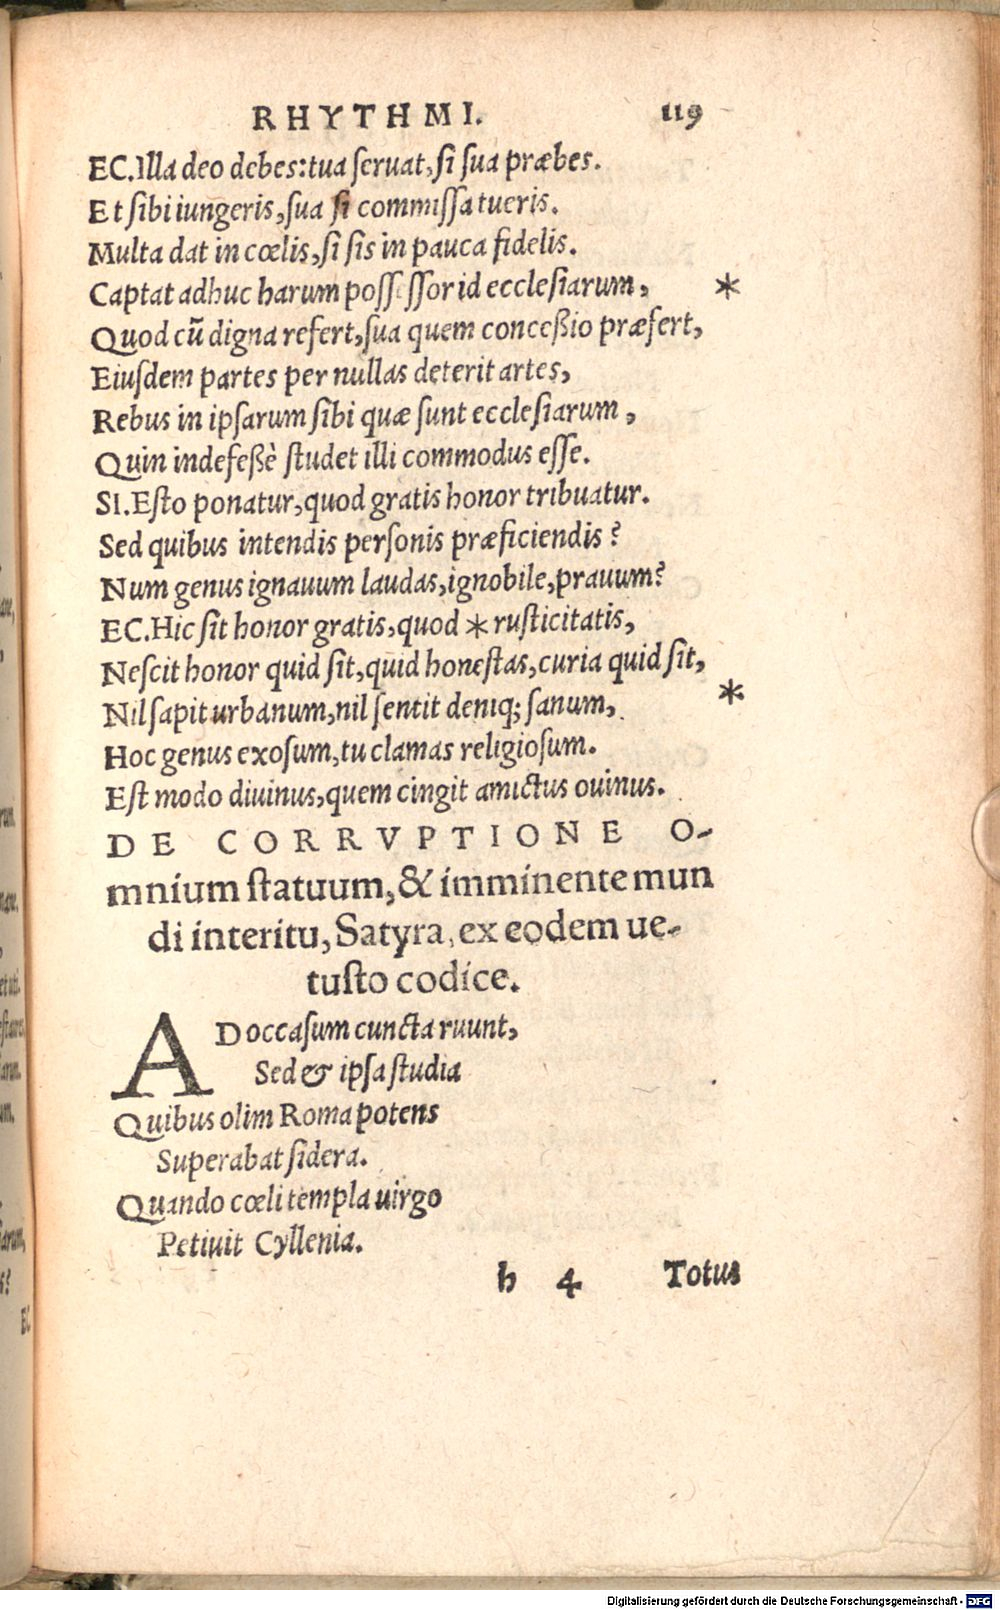 RHYTHMI. 119
EC. Illa deo debes: tua seruat, si sua præbes.
Et sibi iungeris, sua si commissa tueris.
Multa dat in cœlis, si sis in pauca fidelis.
Captat adhuc harum possessor id ecclesiarum, *
Quod cū digna refert, sua quem conceßio præfert,
Eiusdem partes per nullas deterit artes,
Rebus in ipsarum sibi quæ sunt ecclesiarum,
Quin indefeßè studet illi commodus esse.
SI. Esto ponatur, quod gratis honor tribuatur.
Sed quibus intendis personis præficiendis?
Num genus ignauum laudas, ignobile, prauum?
EC. Hic sit honor gratis, quod * rusticitatis,
Nescit honor quid sit, quid honestas, curia quid sit,
Nil sapit urbanum, nil sentit deniq; sanum, *
Hoc genus exosum, tu clamas religiosum.
Est modo diuinus, quem cingit amictus ouinus.
DE CORRVPTIONE O-
mnium statuum, & imminente mun
di interitu, Satyra, ex eodem ue-
tusto codice.
AD occasum cuncta ruunt,
Sed & ipsa studia
Quibus olim Roma potens
Superabat sidera.
Quando cœli templa uirgo
Petiuit Cyllenia.
h 4 Totus
ane,
rum
mane,
et uti.
arum.
um.
arum,
s?
EC
Digitalisierung gefördert durch die Deutsche Forschungsgemeinschaft - DFG